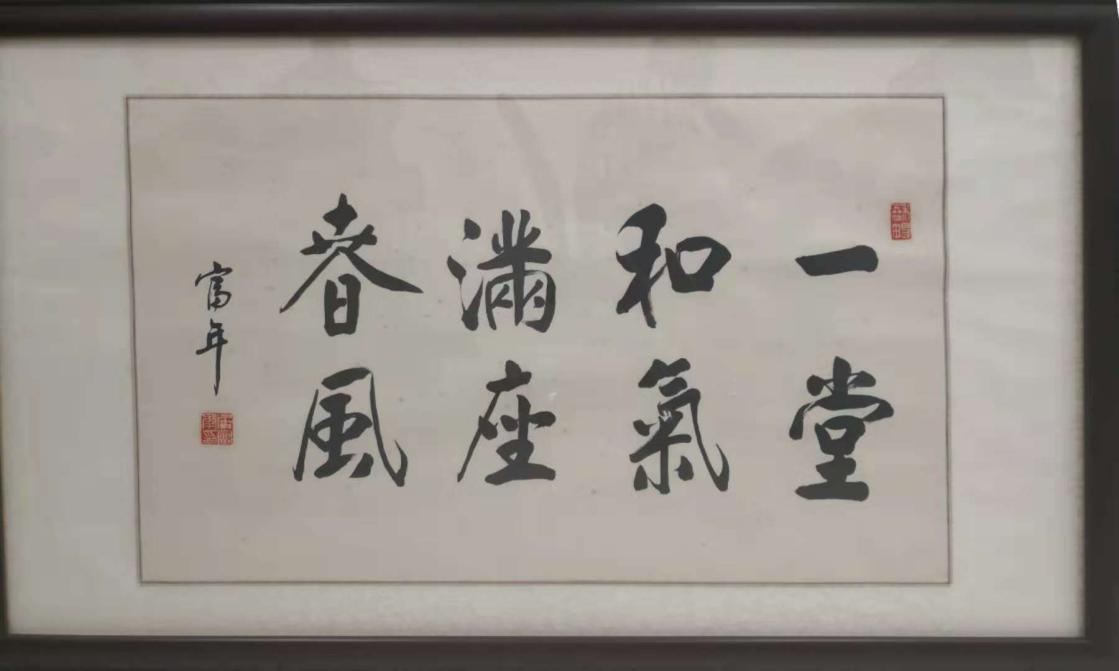 一堂
和氣
滿座
春風
富年